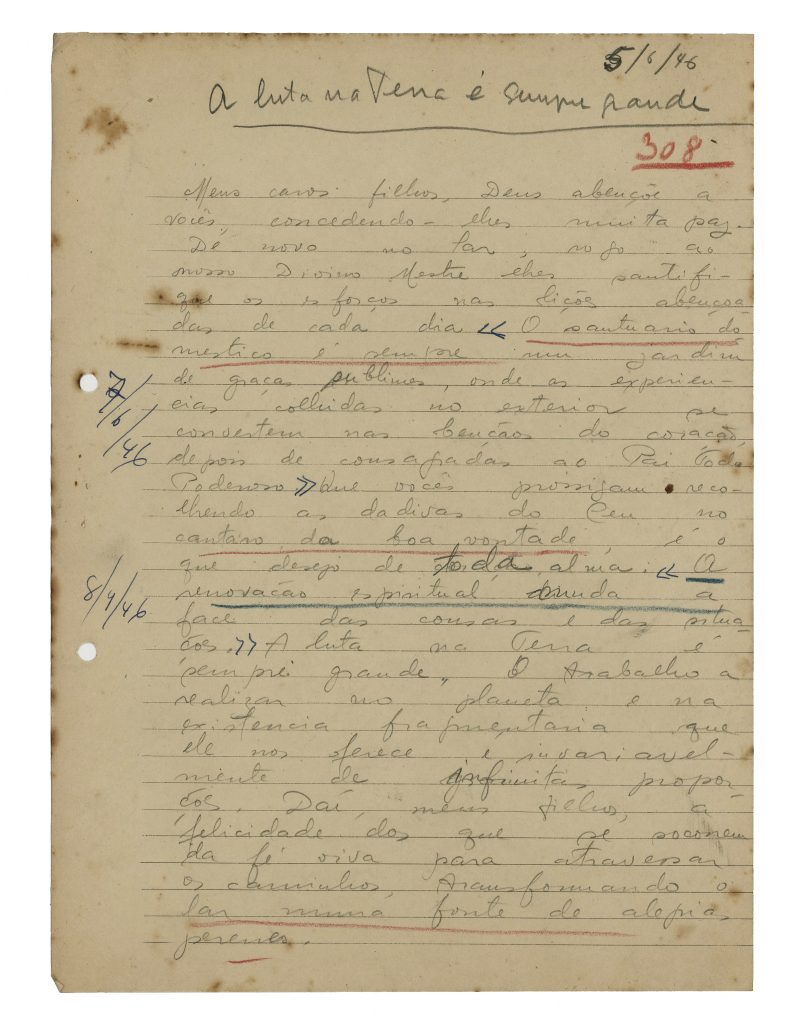 5/6/46
A luta na Terra é sempre grande
308
Meus caros filhos, Deus abençôe a
vocês, concedendo-lhes muita paz.
De novo no lar, rogo ao
nosso Divino Mestre lhes santifi-
que os esforços nas lições abençoa
das de cada dia. << O santuario do
mestico é sempre um jardim
de graças sublimes, onde as experien-
cias colhidas no exterior se
7/6/46
convertem nas bençãos do coração,
depois de consagradas ao Pai Todo
Poderoso. >> Que vocês prossigam reco-
lhendo as dadivas do Ceu no
cantaro da boa vontade, é o
que desejo de toda alma. << A
8/4/46
renovação espiritual muda a
face das cousas e das situa
ções. >> A luta na Terra é
sempre grande. O trabalho a
realizar no planeta e na
existencia fragmentaria que
ele nos oferece é invariavel-
mente de infinitas propor
ções. Daí, meus filhos, a
felicidade dos que se socorrem
da fé viva para atravessar
os caminhos, transformando o
lar numa fonte de alegrias
perenes.